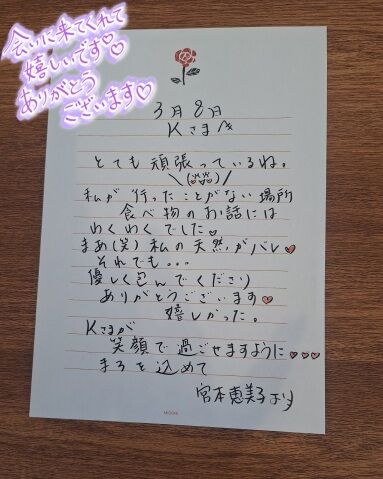 会いに来てくれて
嬉しいです♡
ありがとう
ございます♡
3月8日
Kさまへ
とても頑張っているね。
私が行ったことがない場所
食べ物のお話には
わくわくでした
まぁ(笑)私の天然がバレ
それでも...
優しく包んでくださり
ありがとうございます
嬉しかった。
Kさまが
笑顔で過ごせますように
まろを込めて
宮本恵美子より
MIDORI